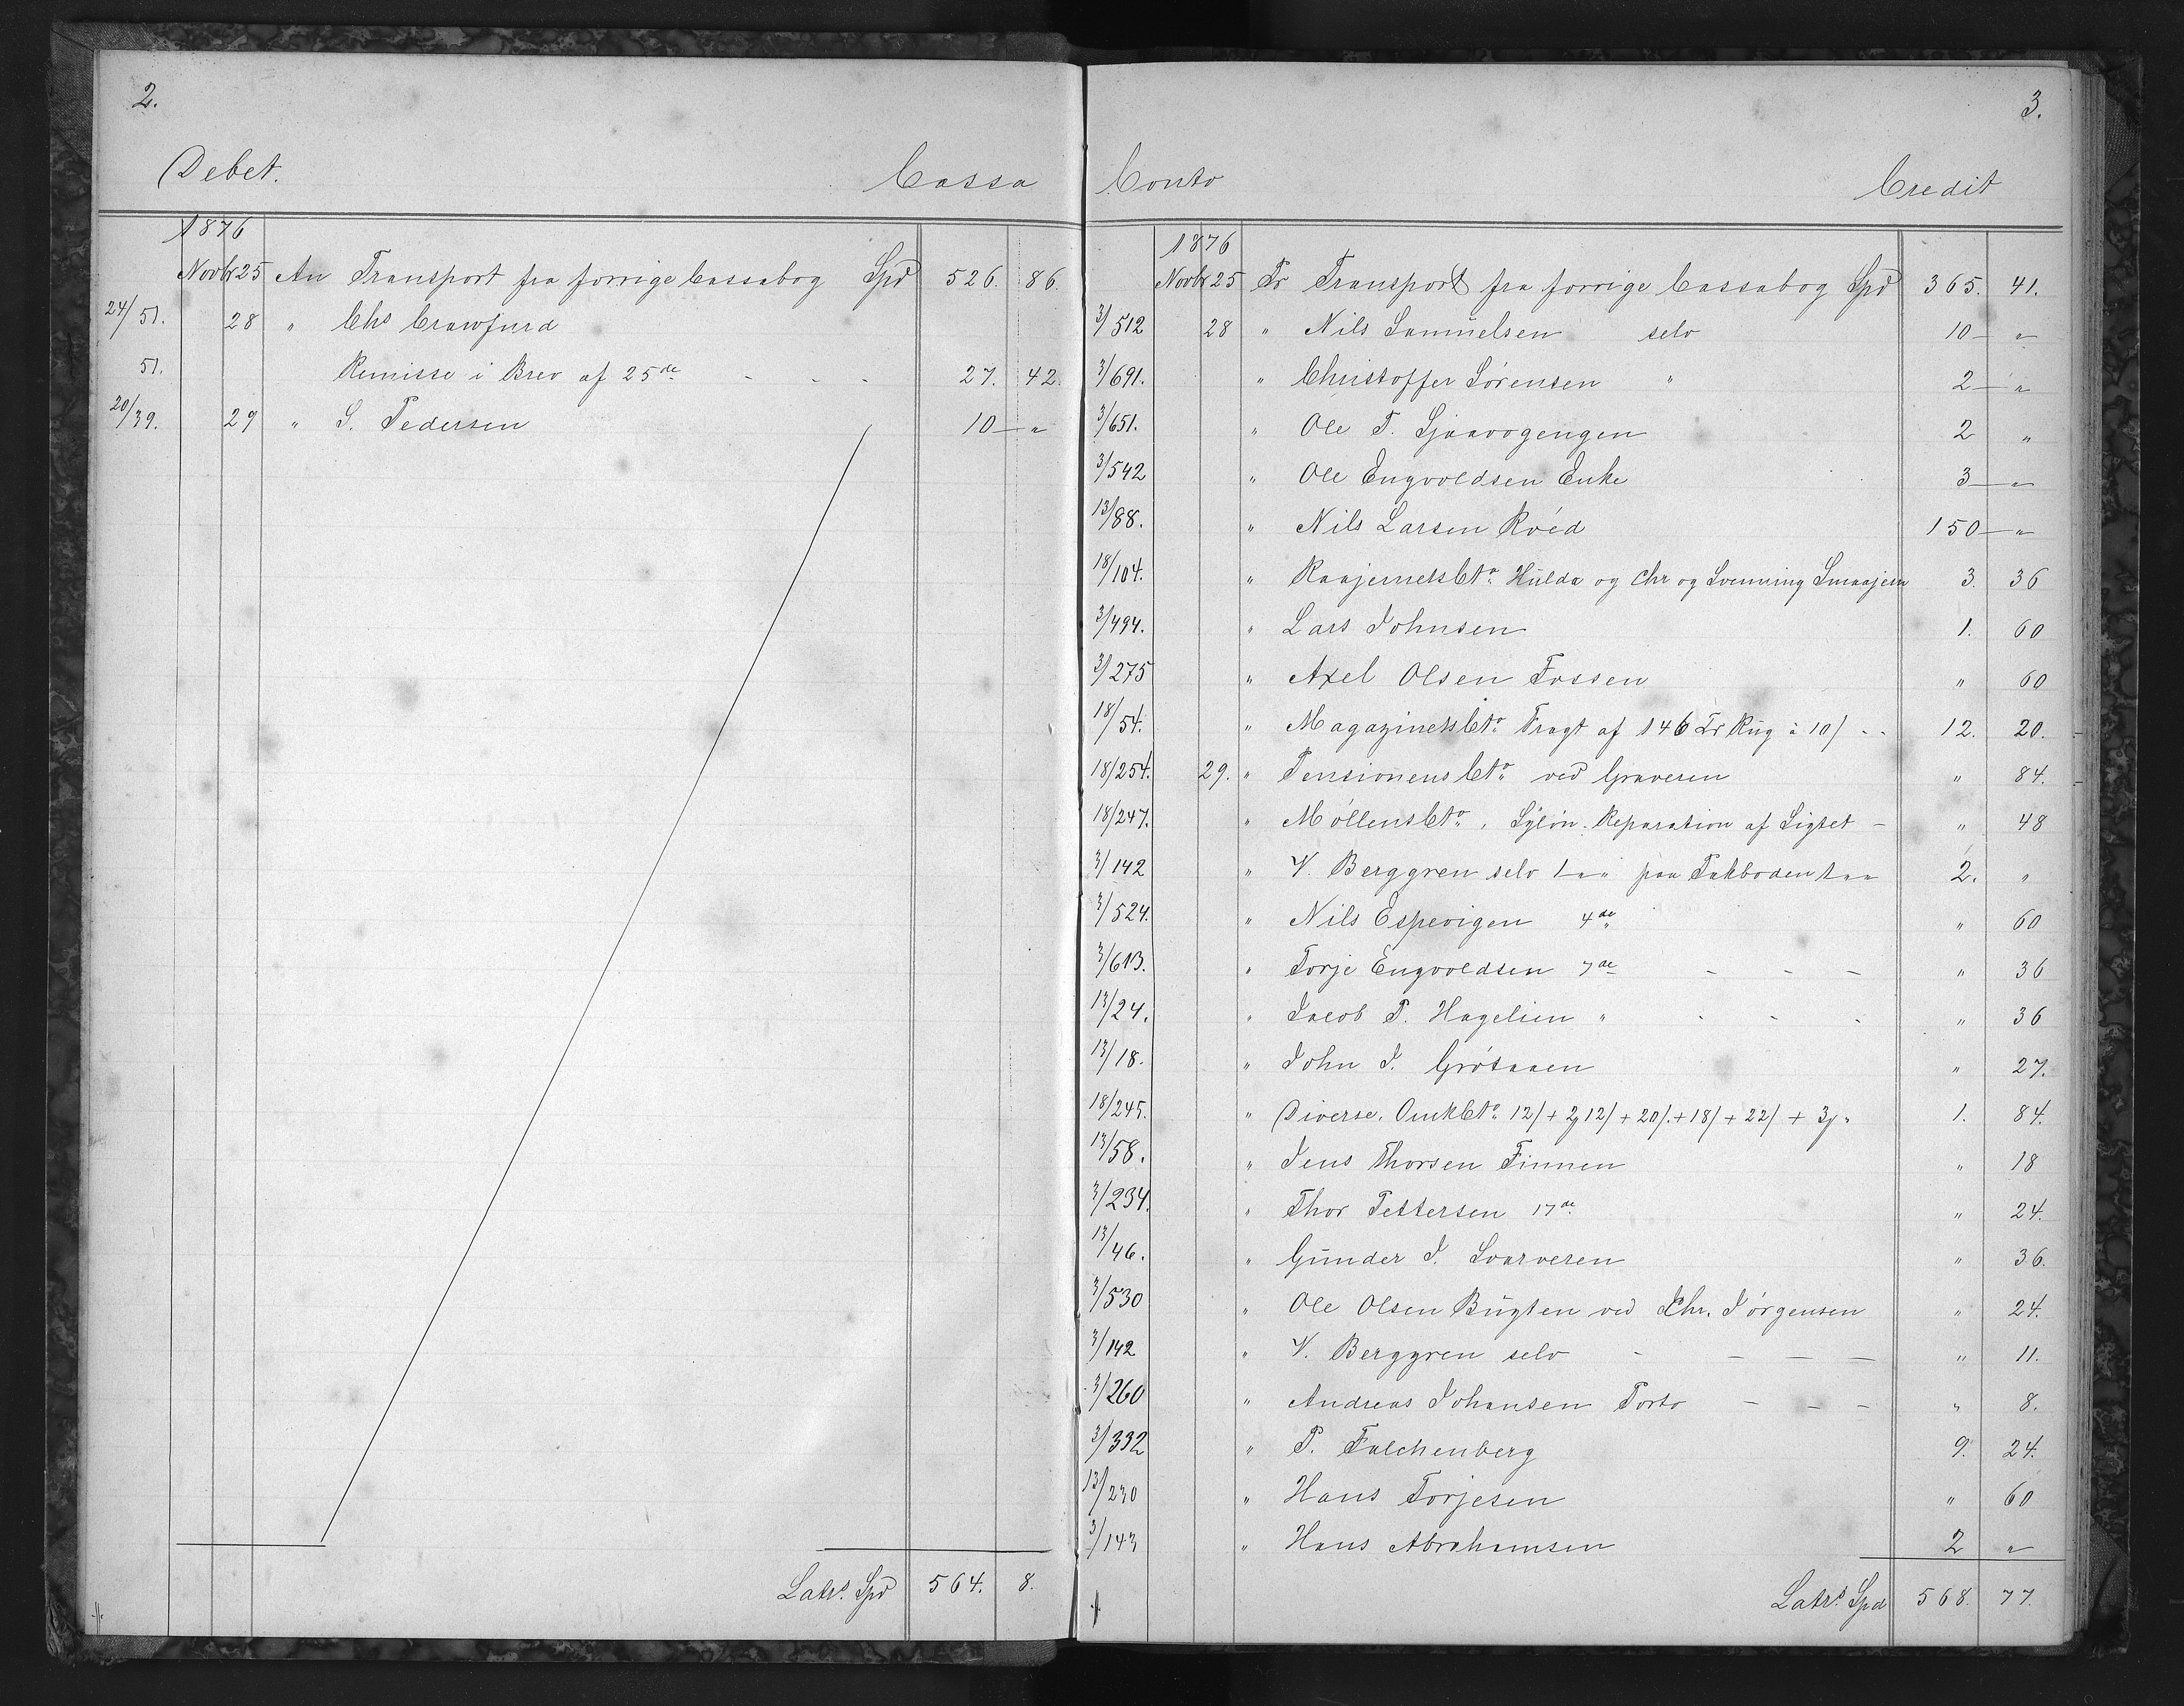 2.
Debet. Cassa
1876
Novbr 25 An Transport fra forrige Cassabog Spd 526. 86.
24/51. 28 " Chs Crawfurd
51. Remisse i Brev af 25de - - - 27. 42.
20/39. 29 " S. Pedersen 10 — "
Latrs. Spd 564. 8.
3.
Conto Credit
1876
Novbr 25 Pr Transport fra forrige Cassabog Spd 365. 41.
3/512 28 " Nils Samuelsen selv 10 — "
3/691. " Christoffer Sørensen " 2 — "
3/651. " Ole T. Sjaavogengen 2 "
3/542 " Ole Engvoldsen Enke 3 — "
13/88. " Nils Larsen Röed 150 — "
18/104. " RaajernetsCto. Hulda og Chr og Svenning Smaajern 3. 36
3/494. " Lars Johnsen 1. 60
3/275 " Axel Olsen Fossen " 60
18/54. " MagazinetsCto. Fragt af 146 Tr Rug à 10/ - - 12. 20.
18/254. 29. " PensionensCto. ved Graveren " 84.
18/247. " MøllensCto. Syløn. Reparation af Sigtet - " 48
3/142 " V. Berggren selv 1 — " paa Pakboden 1 — " 2. "
3/524. " Nils Espevigen 4de " 60
3/613. " Torje Engvoldsen 7de - - - " 36
13/24. " Jacob P. Hagelien " - - - " 36
13/18. " John J. Grötaaen " 27.
18/245. " Diverse. OmkCto. 12/ + 2 12/ + 20/. + 18/ + 22/ + 3 " 1. 84.
13/58. " Jens Thorsen Finnen " 18
3/234. " Thor Pettersen 17de " 24.
13/46. " Gunder J. Svarveren " 36.
3/530 " Ole Olsen Bugten ved Chr. Jørgensen " 24.
3/142 " V. Berggren selv - - - - " 11.
3/260 " Andreas Johansen Porto - - - " 8.
3/332 " P. Falchenberg 9. 24.
13/230 " Hans Torjesen " 60
3/143 " Hans Abrahamsen 2 "
Latrs. Spd 568. 77.